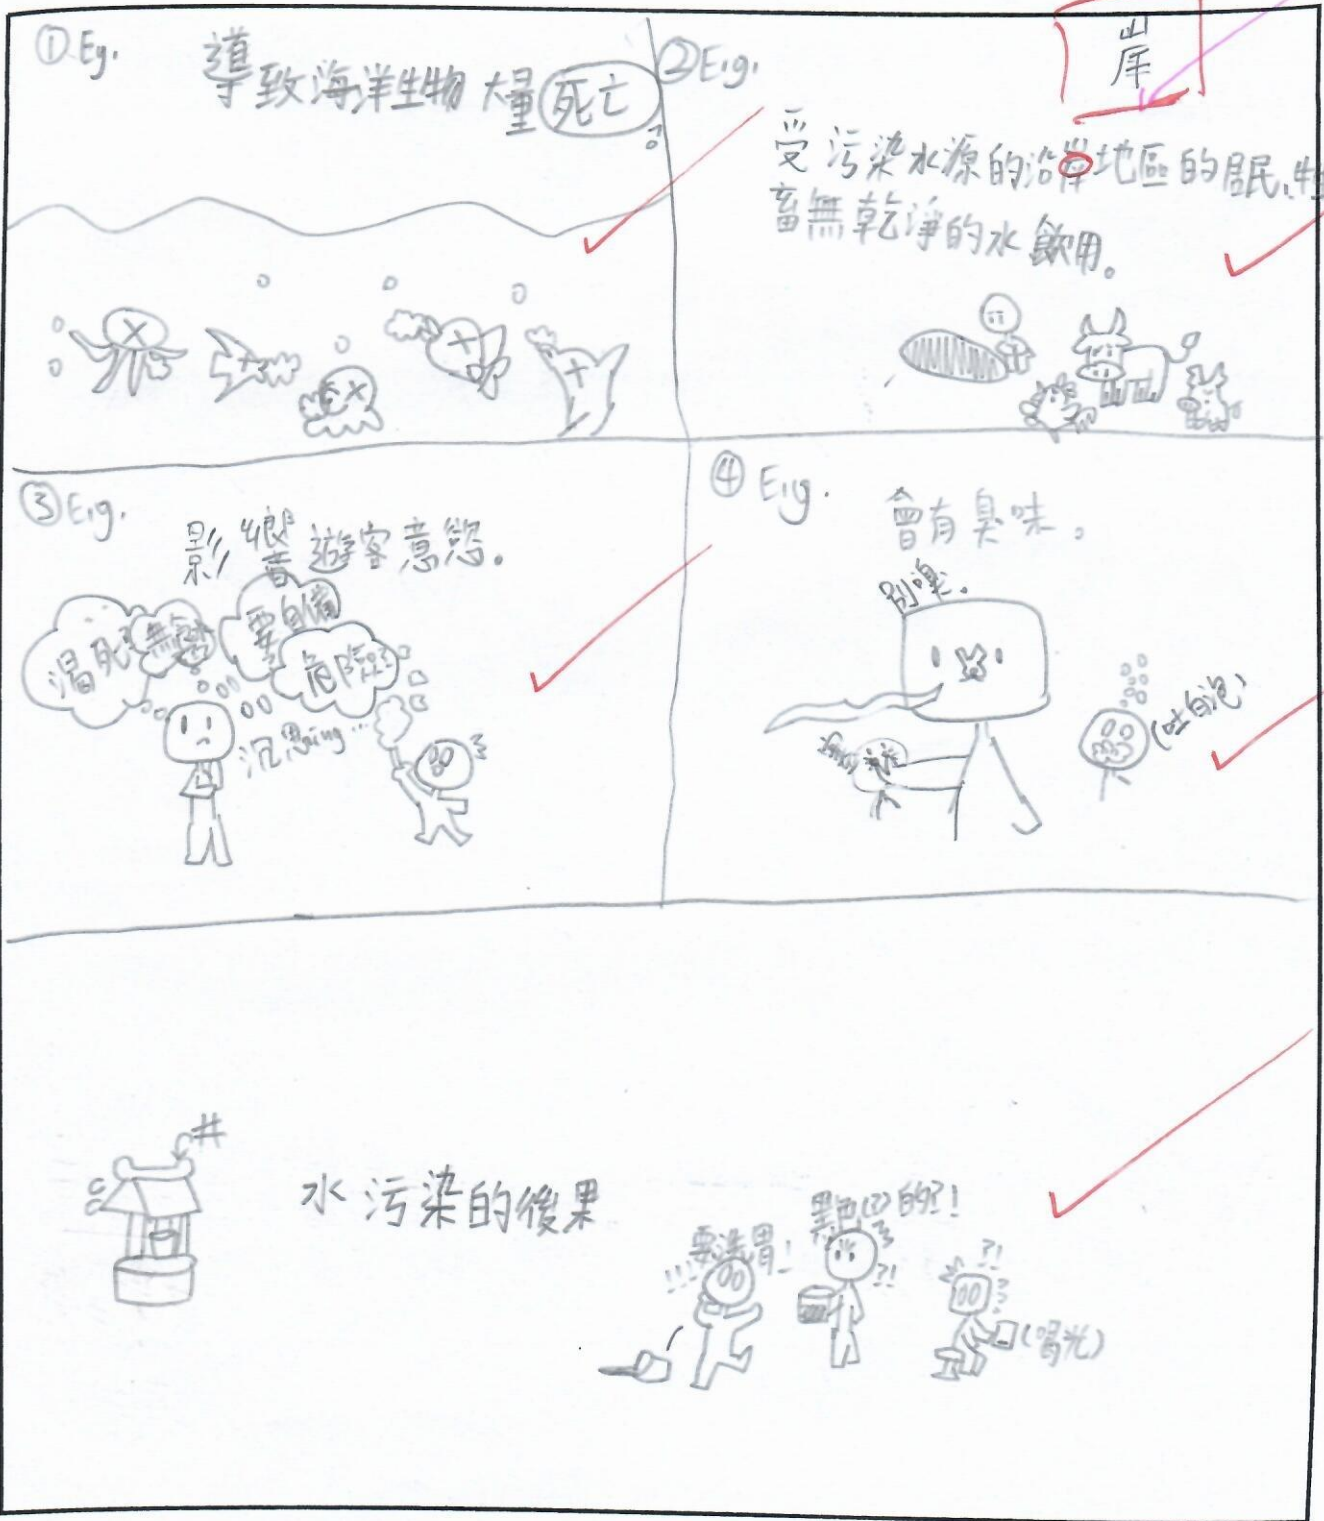 ①Eg.
導致海洋生物大量死亡。
②E.g.
岸
受污染水源的沿岸地區的居民、牲
畜無乾淨的水飲用。
③E.g.
影響遊客意慾。
渴死?
要自備
危險?
沉思ing...
④E.g.
會有臭味。
別嘆.
(吐白泡)
井
水污染的後果
要洗胃!
!!!
黑色(?)的?!
?!
?!
(喝光)